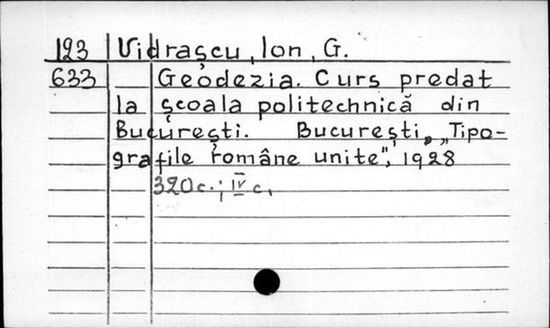 123 Vidraşcu, Ion, G.
633 Geodezia. Curs predat
la şcoala politechnică din
Bucureşti. Bucureşti, „Tipo-
grafile române unite", 1928
320c.; IV c.